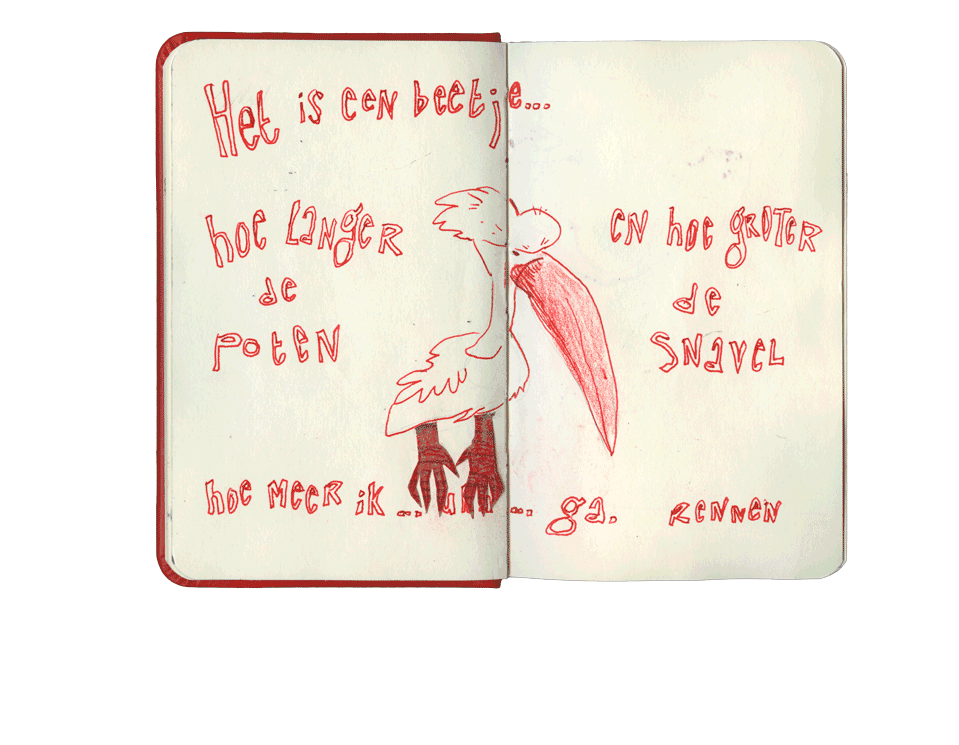 Het is een beetje...
hoe LANGER
de
POTEN
en hoe GROTER
de
SNAVEL
hoe MEER ik ... ... ga. RENNEN